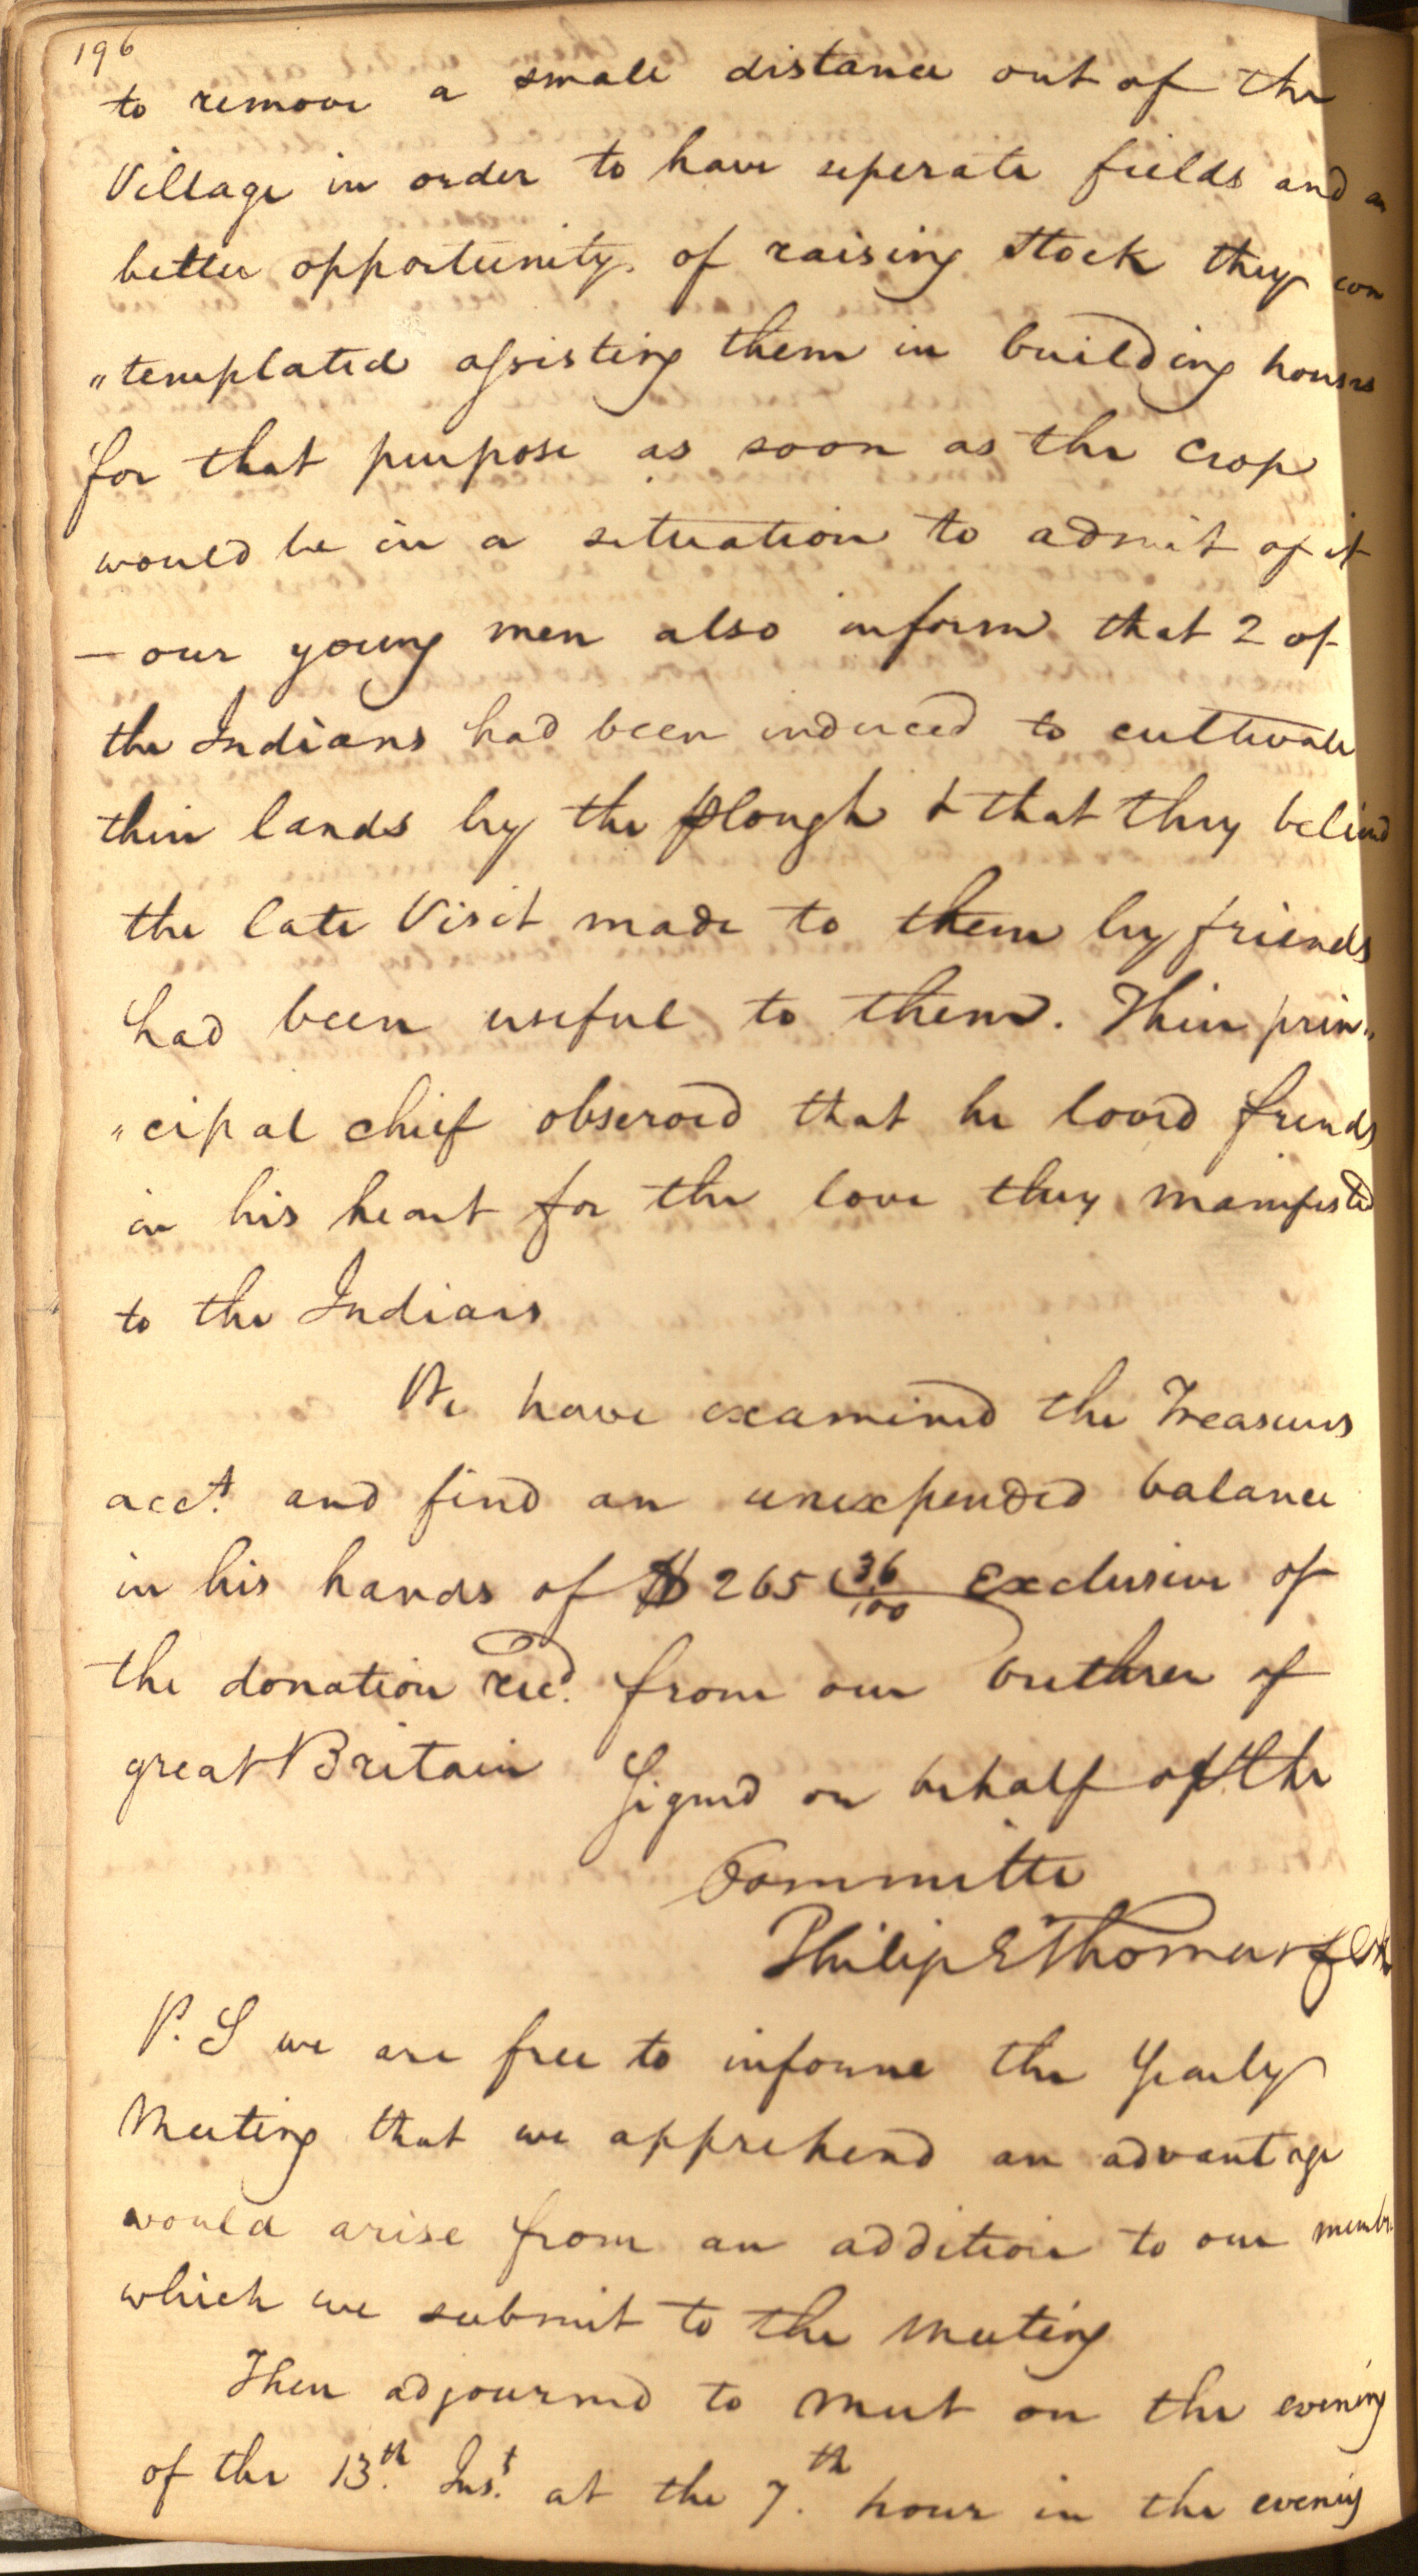 196
to remove a small distance out of the
Village in order to have seperate fields and a
better opportunity of raising stock they con
"templated assisting them in building houses
for that purpose as soon as the crop
would be in a situation to admit of it
— our young men also inform that 2 of
the Indians had been induced to cultivate
their lands by the plough & that they believd
the late Visit made to them by friends
had been useful to them. Their prin"
"cipal chief observed that he loved friends
in his heart for the love they manifested
to the Indians
We have examined the Treasurers
acct. and find an unexpended balance
in his hands of $265 36/100 exclusive of
the donation recd. from our brethren of
great Britain Signed on behalf of the
Committe
Philip E Thomas Clk
P. S we are free to informe the Yearly
Meeting that we apprehend an advantage
would arise from an addition to our membr.
which we submit to the meeting
Then adjourned to meet on the evening
of the 13.th Inst. at the 7.th hour in the evening